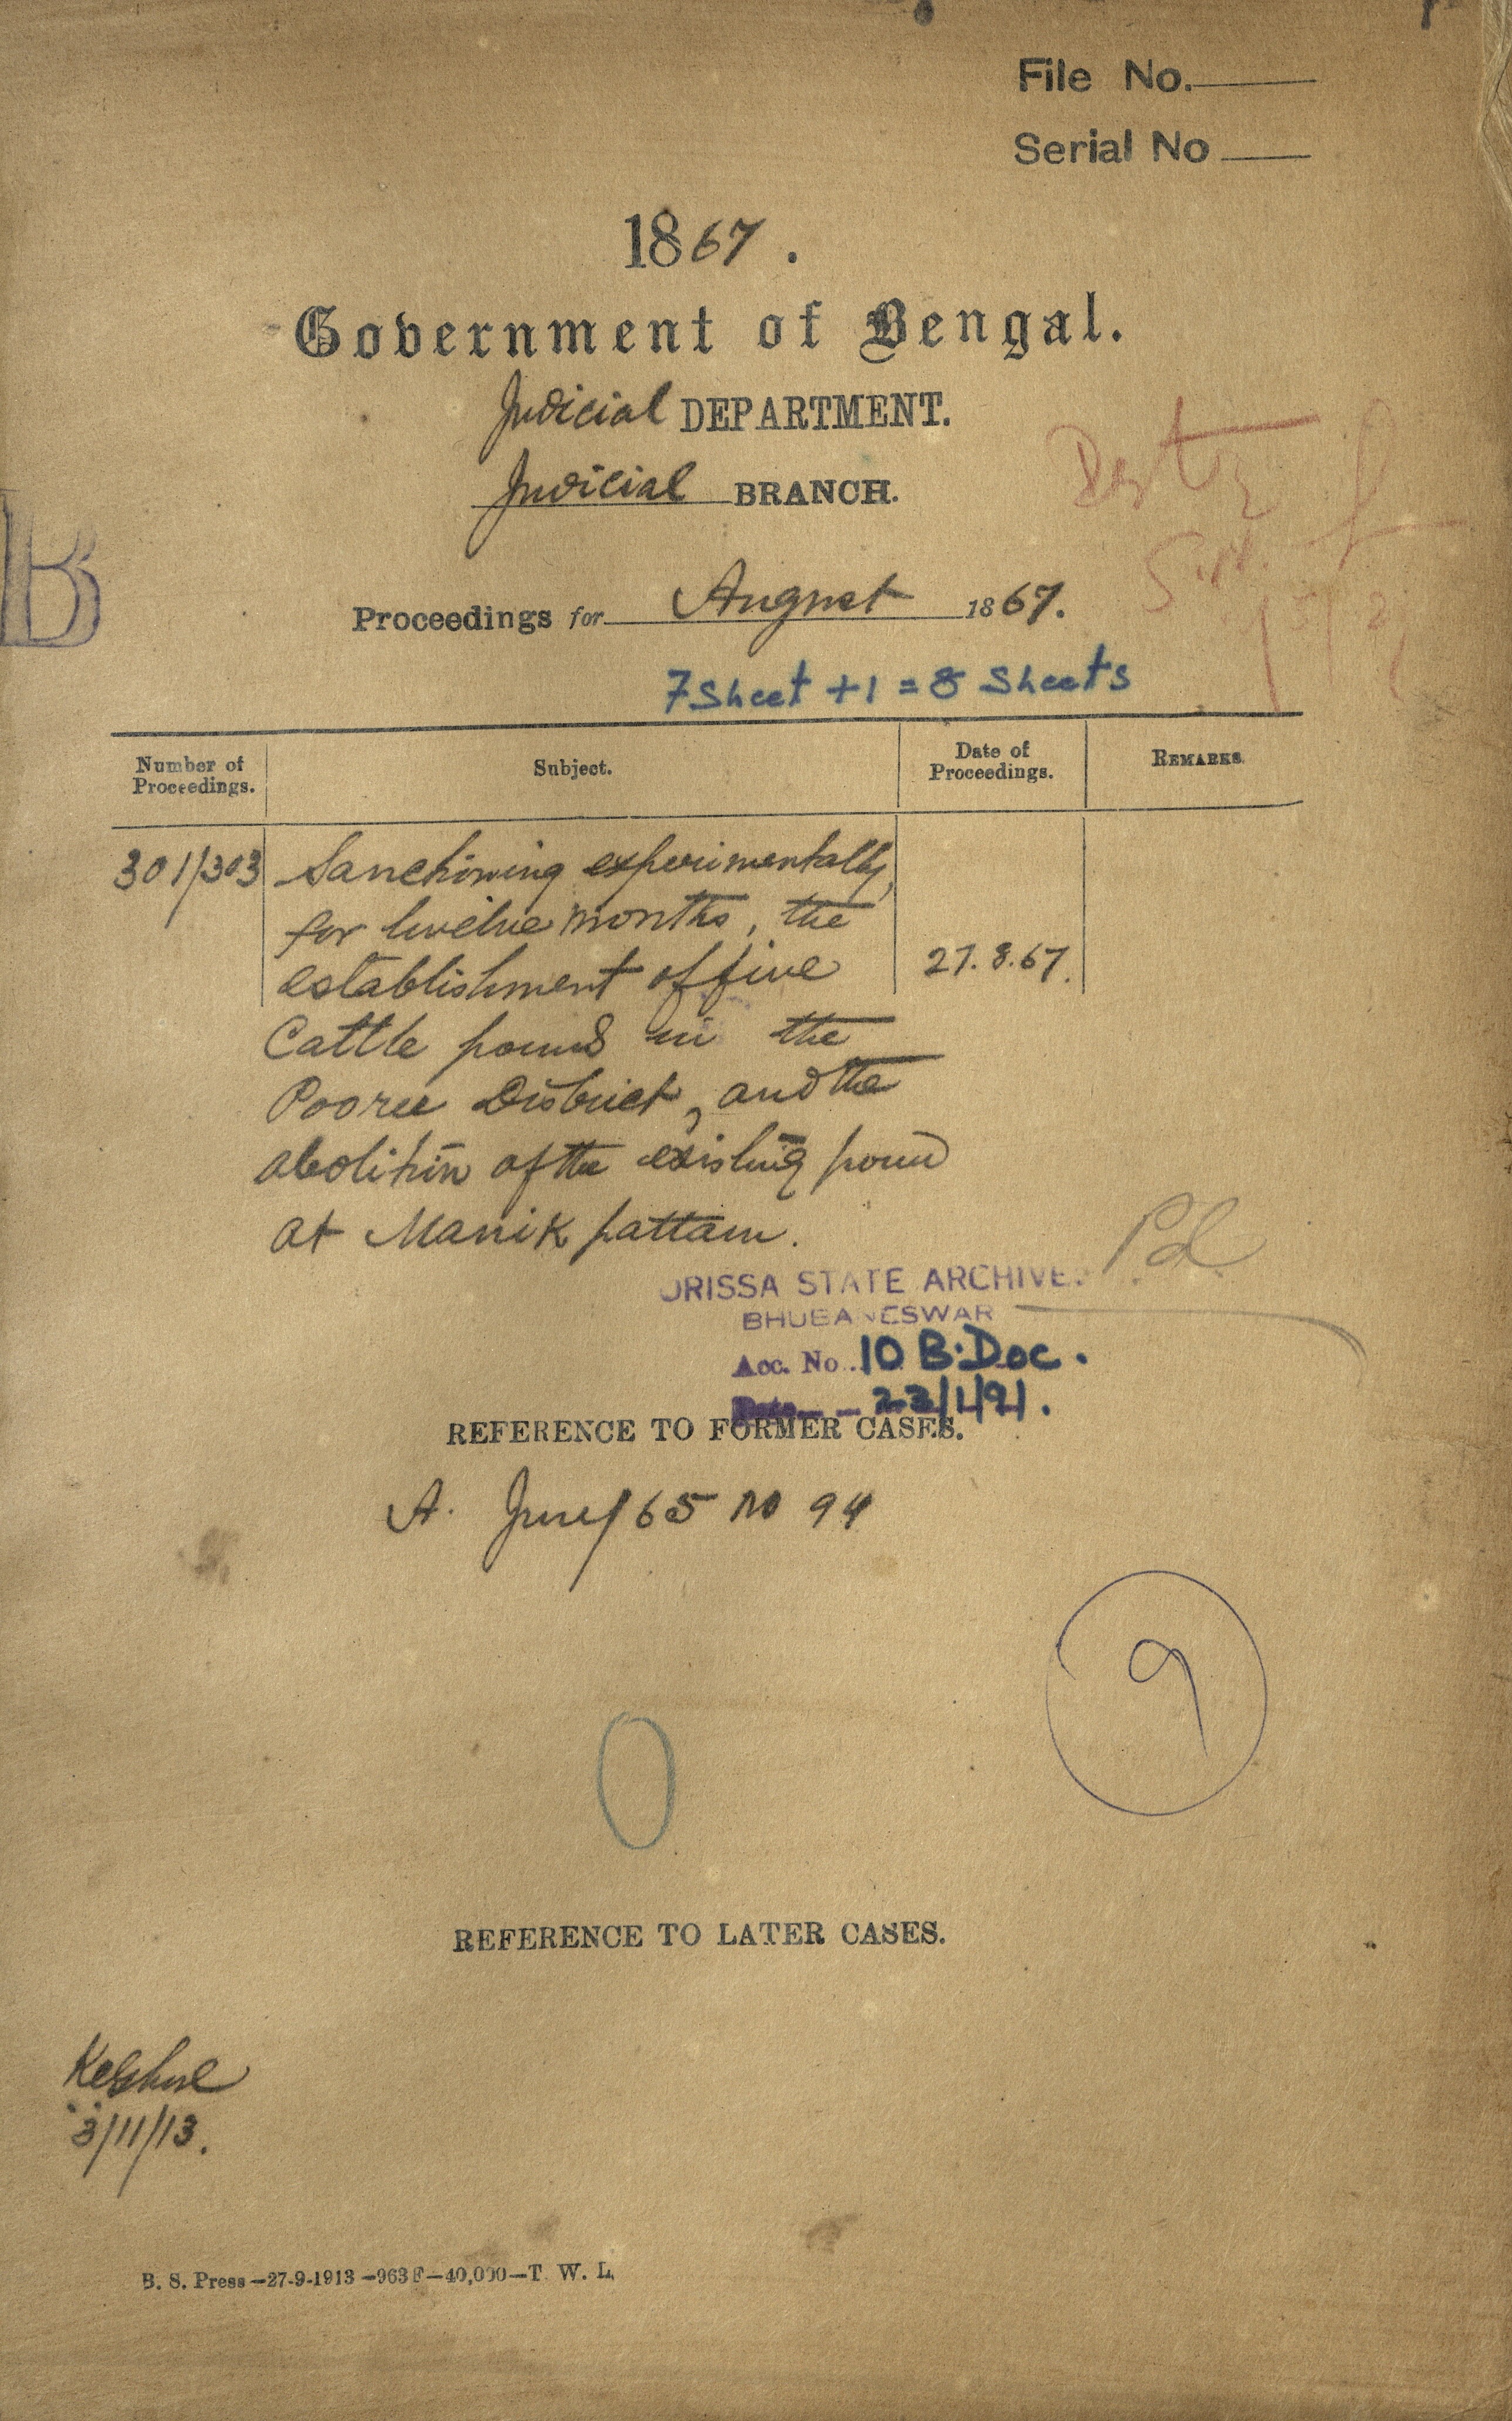 File No.
Serial No
1867.
Government of Bengal.
Judicial DEPARTMENT.
Judicial BRANCH.
B
Proceedings for August 1867.
7 Sheet + 1 = 8 Sheets
Number of Proceedings.
Subject.
Date of Proceedings.
REMARKS.
301/303
Sanctioning experimentally,
for twelve months, the
establishment of five
27.8.67.
Cattle pound in the
Pooree District, and the
abolition of the existing pound
at Manikpattam.
Pd
ORISSA STATE ARCHIVES
BHUBANESWAR
Acc. No. 10 B. Doc.
Date 23/1/91.
REFERENCE TO FORMER CASES.
A. June/65 no 94
9
0
REFERENCE TO LATER CASES.
3/11/13.
B. S. Press—27-9-1913—963F—40,000—T. W. L.